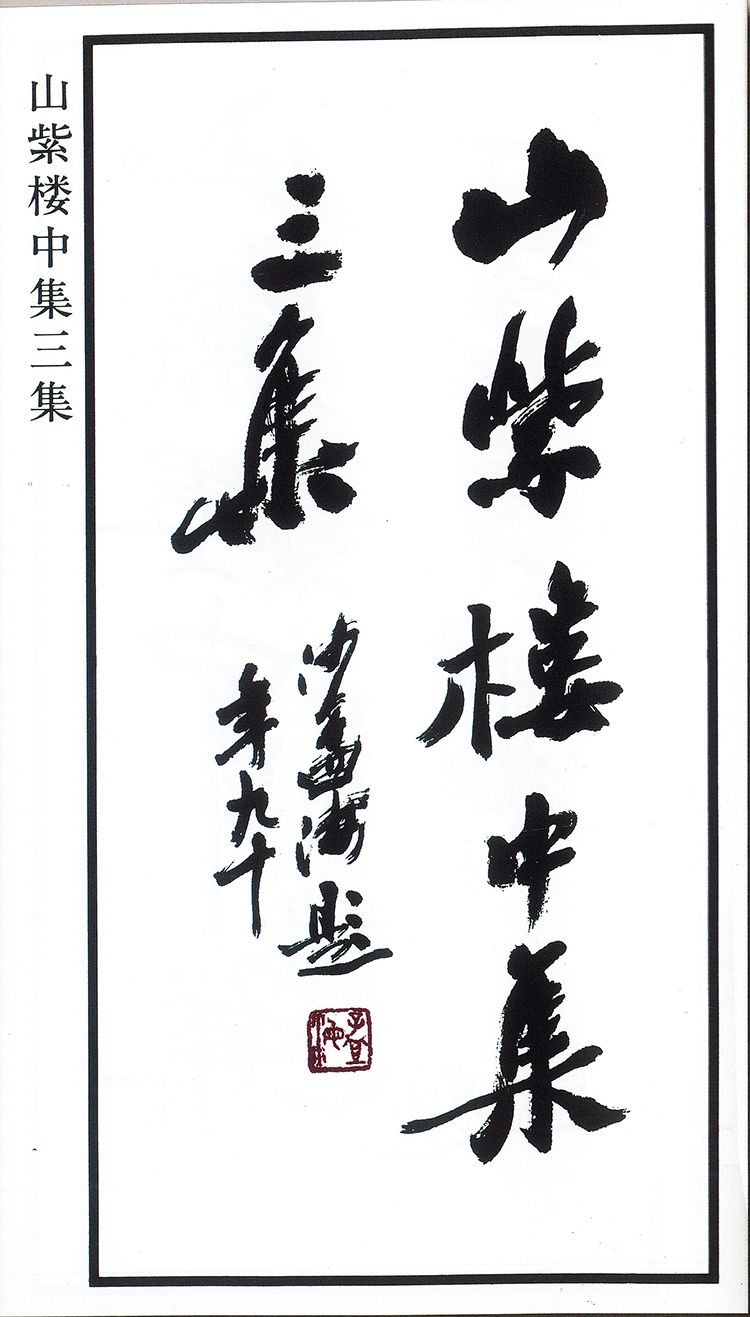 山紫楼中集
三集
沙孟海題
年九十
山紫楼中集三集